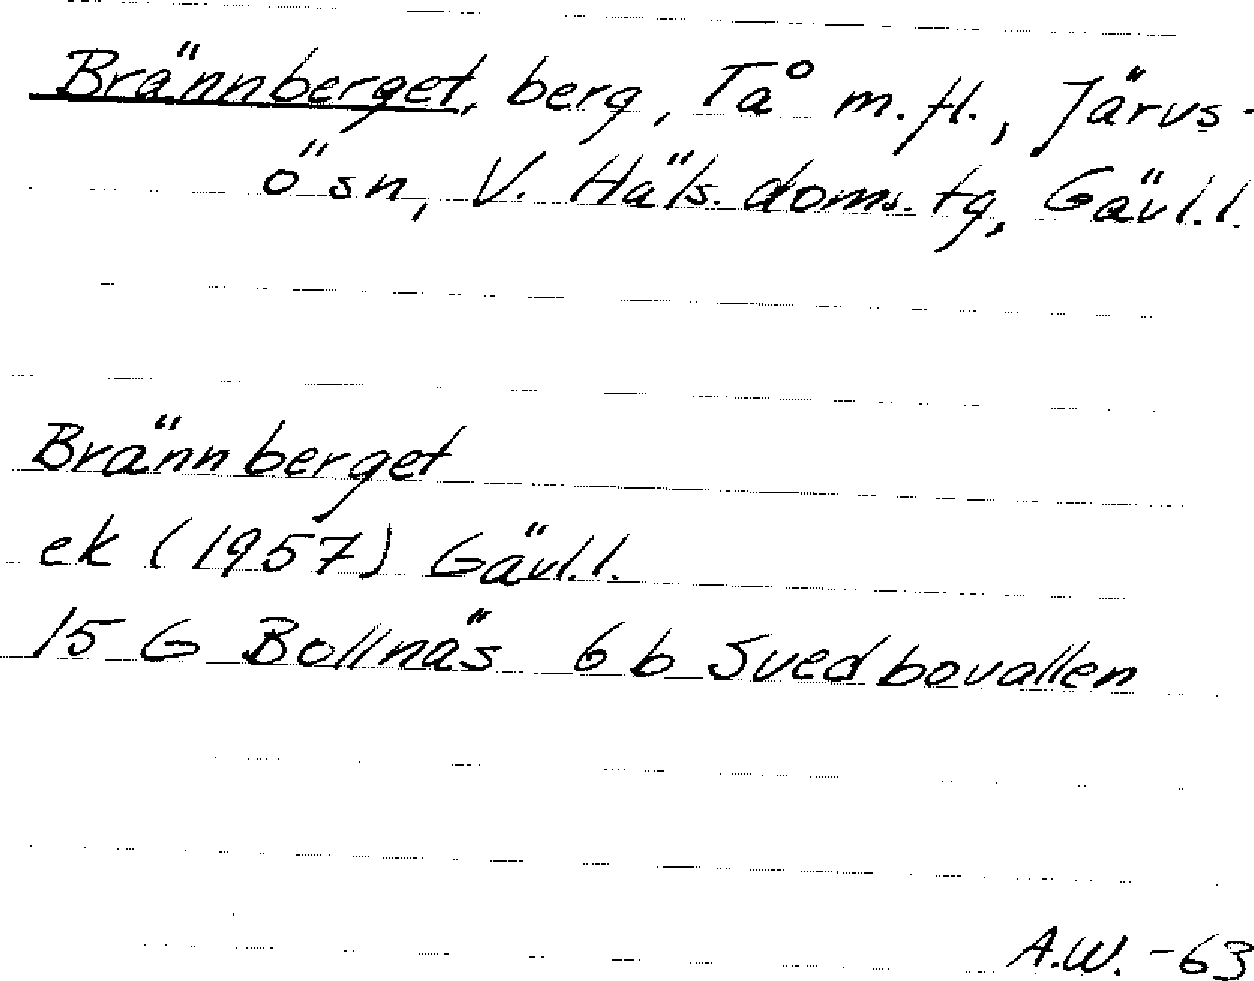 Brännberget, berg, Tå m.fl., Järvs-
ö sn, V. Häls. doms. tg, Gävl.l.
Brännberget
ek (1957) Gävl.l.
15 G Bollnäs 6 b Svedbovallen
A.W. -63